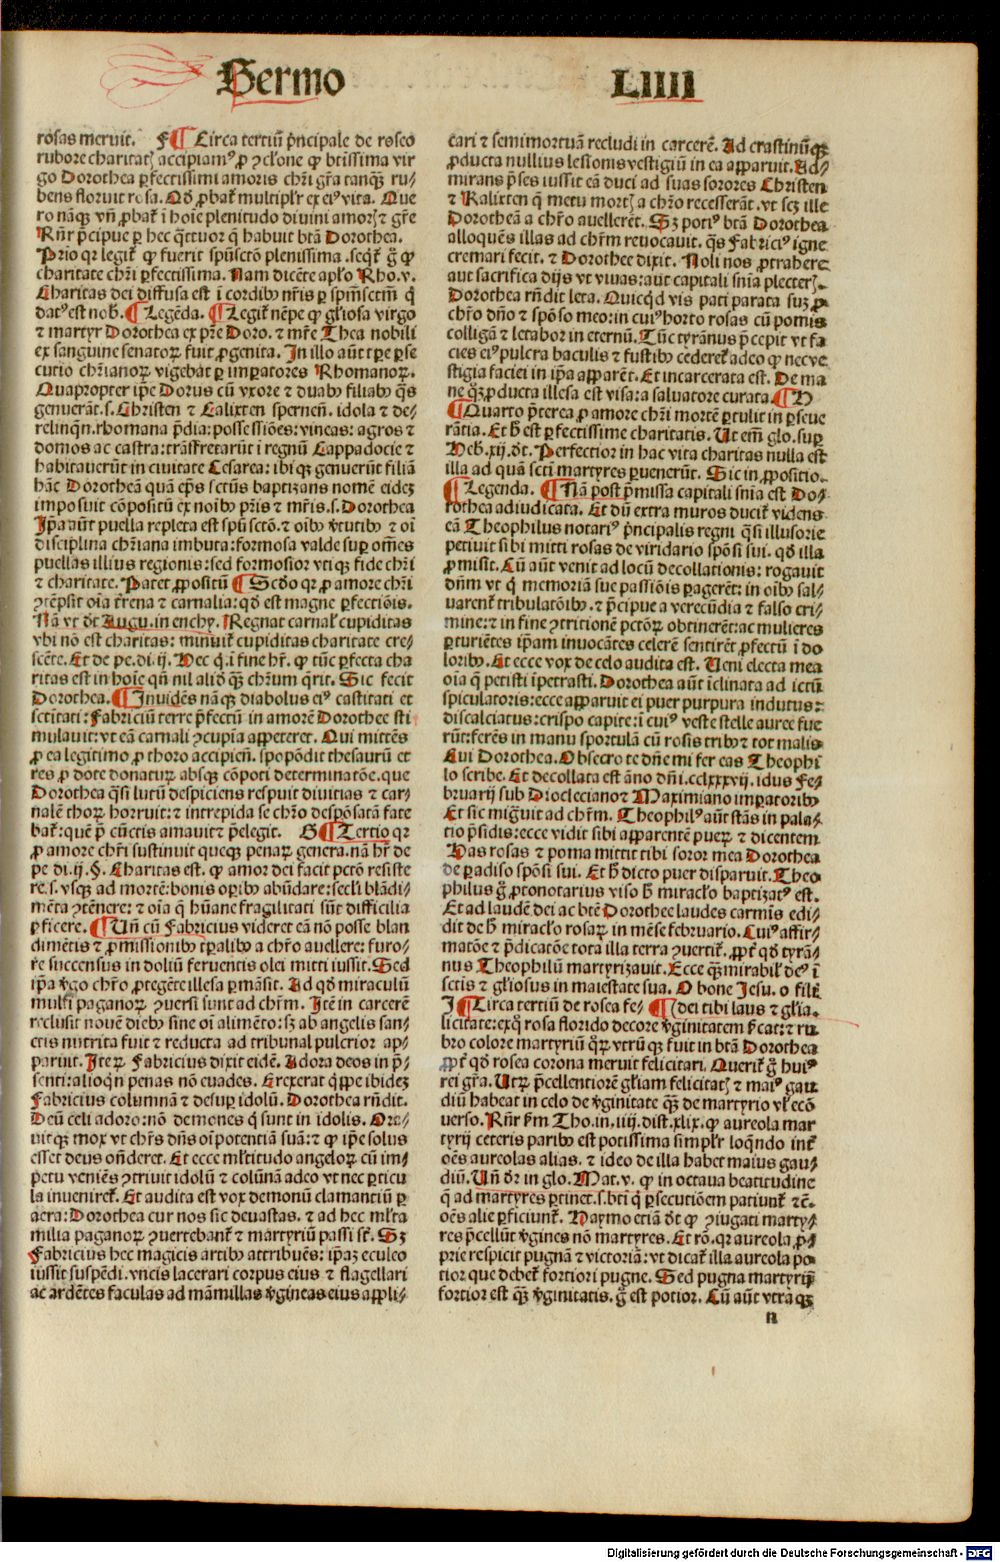 Sermo LIIII
rosas meruit. F ¶ Circa tertiũ p̃ncipale de roseo
rubore charitatꝭ accipiamꝰ ꝓ ꝯcl'one ꝙ btissima vir
go Dorothea ꝑfectissimi amoris chr̃i gr̃a tanqꝫ ru-
bens floruit rosa. Qđ ꝓbat̃ multiplr̃ ex eiꝰ vita. Que
ro nãqꝫ vñ ꝓbat̃ ĩ hoĩe plenitudo diuini amorꝭ ⁊ gr̃e
Rñr p̃cipue ꝑ hec q̃ttuor q̃ habuit btã Dorothea.
Prĩo qꝛ legit̃ ꝙ fuerit spũsctõ plenissima. seqt̃ g̃ ꝙ
charitate chr̃i ꝑfectissima. Nam dicẽte apl'o Rho. v.
Charitas dei diffusa est ĩ cordibꝰ nr̃is ꝑ spm̃sctm̃ q̃
datꝰ est nob̃. ¶ Legẽda. ¶ Legit̃ nẽpe ꝙ gl'iosa virgo
⁊ martyr Dorothea ex pr̃e Doro. ⁊ mr̃e Thea nobili
ex sanguine senatoꝝ fuit ꝓgenita. In illo aũt tꝑe ꝑse
cutio chr̃ianoꝝ vigebat ꝑ imꝑatores Rhomanoꝝ.
Quapropter ip̃e Dorus cũ vxore ⁊ duabꝰ filiabꝰ q̃s
genuerãt.s. Christen ⁊ Calixten spernen̄. idola ⁊ de-
relinqn̄.rhomana p̃dia: possessiões: vineas: agros ⁊
domos ac castra: trãsfretarũt ĩ regnũ Cappadocie ⁊
habitauerũt in ciuitate Cesarea: ibiqꝫ genuerũt filiã
hãc Dorotheã quã ep̃s sctũs baptizans nomẽ eidez
imposuit cõpositũ ex noĩbꝰ pr̃is ⁊ mr̃is.s. Dorothea
Ip̃a aũt puella repleta est spũ sctõ. ⁊ oĩbꝰ v̾tutibꝰ ⁊ oĩ
disciplina chr̃iana imbuta: formosa valde suꝑ om̃es
puellas illius regionis: sed formosior vtiqꝫ fide chr̃i
⁊ charitate. Patet ꝓpositũ ¶ Scđo qꝛ ꝓ amore chr̃i
ꝯtẽpsit oĩa t̃rena ⁊ carnalia: qđ est magne ꝑfectiõis.
Nã vt đt Augu. in enchy. Regnat carnal' cupiditas
vbi nõ est charitas: minuit̃ cupiditas charitate cre-
scẽte. Et de pe. di. ij. Hec q̃. ĩ fine hr̃. ꝙ tũc ꝑfecta cha
ritas est in hoĩe qñ nil aliđ qꝫ chr̃um q̃rit. Sic fecit
Dorothea. ¶ Inuidẽs nãqꝫ diabolus eiꝰ castitati et
sctitati: Fabriciũ terre p̃fectũ in amorẽ Dorothee sti
mulauit: vt eã carnali ꝯcupĩa appeteret. Qui mittẽs
ꝓ ea legitimo ꝓ thoro accipien̄. spopõdit thesaurũ et
res ꝓ dote donaturꝝ absqꝫ cõpoti determinatõe. que
Dorothea q̃si lutũ despiciens respuit diuitias ⁊ car-
nalẽ thoꝝ horruit: ⁊ intrepida se chr̃o despõsatã fate
bat̃: quẽ p̃ cũctis amauit⁊ p̃elegit. G ¶ Tertio qꝛ
ꝓ amore chr̃i sustinuit queqꝫ penaꝝ genera. nã hr̃ de
pe di. ij. §. Charitas est. ꝙ amor dei facit pctõ resiste
re.s. vsqꝫ ad mortẽ: bonis oꝑibꝰ abũdare: secl'i blãdi-
mẽta ꝯtẽnere: ⁊ oĩa q̃ hũane fragilitati sũt difficilia
ꝑficere. ¶ Uñ cũ Fabricius videret eã nõ posse blan
dimẽtis ⁊ ꝓmissionibꝰ tꝑalibꝰ a chr̃o auellere: furo-
re succensus in doliũ feruentis olei mitti iussit. Sed
ip̃a v̾go chr̃o ꝓtegẽte illesa ꝑmãsit. Ad qđ miraculũ
multi paganoꝝ ꝯuersi sunt ad chr̃m. Itẽ in carcerẽ
reclusit nouẽ diebꝰ sine oĩ alimẽto: sꝫ ab angelis san-
ctis nutrita fuit ⁊ reducta ad tribunal pulcrior ap-
paruit. Iteꝝ Fabricius dixit eidẽ. Adora deos in p̃-
senti: alioqñ penas nõ euades. Erexerat q̃ppe ibidez
Fabricius columnã ⁊ desuꝑ idolũ. Dorothea rñdit.
Deũ celi adoro: nõ demones q̃ sunt in idolis. Ora-
uitqꝫ mox vt chr̃s dñs oĩpotentiã suã: ⁊ ꝙ ip̃e solus
esset deus oñderet. Et ecce ml'titudo angeloꝝ cũ im-
petu veniẽs ꝯtriuit idolũ ⁊ colũnã adeo vt nec ꝑticu
la inueniret̃. Et audita est vox demonũ clamantiũ ꝑ
aera: Dorothea cur nos sic deuastas. ⁊ ad hec ml'ta
milia paganoꝝ ꝯuertebant̃ ⁊ martyriũ passi st̃. Sꝫ
Fabricius hec magicis artibꝰ attribuẽs: ip̃aꝫ eculeo
iussit suspẽdi. vncis lacerari corpus eius ⁊ flagellari
ac ardẽtes faculas ad mãmillas v̾gineas eius appli-
cari ⁊ semimortuã recludi in carcerẽ. Ad crastinũqꝫ
ꝓducta nullius lesionis vestigiũ in ea apparuit. Ad-
mirans p̃ses iussit eã duci ad suas sorores Christen
⁊ Kalixten q̃ metu mortꝭ a chr̃o recesserãt. vt scꝫ ille
Dorotheã a chr̃o auellerẽt. Sꝫ potiꝰ btã Dorothea
alloquẽs illas ad chr̃m reuocauit. q̃s Fabriciꝰ igne
cremari fecit. ⁊ Dorothee dixit. Noli nos ꝓtrahere
aut sacrifica dijs vt viuas: aut capitali sñia plecterꝭ.
Dorothea rñdit leta. Quicqđ vis pati parata suꝫ ꝓ
chr̃o dño ⁊ spõso meo: in cuiꝰ horto rosas cũ pomis
colligã ⁊ letabor in eternũ. Tũc tyrãnus p̃cepit vt fa
cies eiꝰ pulcra baculis ⁊ fustibꝰ cederet̃ adeo ꝙ nec ve
stigia faciei in ip̃a apparẽt. Et incarcerata est. De ma
ne q̃ꝫ ꝓducta illesa est visa: a saluatore curata. ¶ H
¶ Quarto p̃terea ꝓ amore chr̃i mortẽ ꝑtulit in ꝑseue
rãtia. Et h̃ est ꝑfectissime charitatis. Ut em̃ glo. suꝑ
Heb. xij. đt. Perfectior in hac vita charitas nulla est
illa ad quã scti martyres ꝑuenerũt. Sic in ꝓpositio.
¶ Legenda. ¶ Nã post p̃missa capitali sñia est Do-
rothea adiudicata. Et dũ extra muros ducit̃ videns
eã Theophilus notariꝰ p̃ncipalis regni q̃si illusorie
petiuit sibi mitti rosas de viridario spõsi sui. qđ illa
ꝓmisit. Cũ aũt venit ad locũ decollationis: rogauit
dñm vt q̃ memoriã sue passiõis ꝑageret: in oĩbꝰ sal-
uarent̃ tribulatõibꝰ. ⁊ p̃cipue a verecũdia ⁊ falso cri-
mine: ⁊ in fine ꝯtritionẽ pctõꝝ obtinerẽt: ac mulieres
ꝑturiẽtes ip̃am inuocãtes celerẽ sentirẽt ꝓfectũ ĩ do
loribꝰ. Et ecce vox de celo audita est. Ueni electa mea
oĩa q̃ petisti ĩpetrasti. Dorothea aũt ĩclinata ad ictũ
spiculatoris: ecce apparuit ei puer purpura indutus:
discalciatus: crispo capite: ĩ cuiꝰ veste stelle auree fue
rũt: ferẽs in manu sportulã cũ rosis tribꝰ ⁊ tot malis
Cui Dorothea. Obsecro te dñe mi fer eas Theophi
lo scribe. Et decollata est ãno dñi. cclxxxvij. idus Fe-
bruarij sub Diocleciano⁊ Maximiano imꝑatoribꝰ
Et sic migr̃uit ad chr̃m. Theophilꝰ aũt stãs in pala-
tio p̃sidis: ecce vidit sibi apparentẽ pueꝝ ⁊ dicentem
Has rosas ⁊ poma mittit tibi soror mea Dorothea
de ꝑadiso spõsi sui. Et h̃ dicto puer disparuit. Theo
philus g̃ ꝓtonotarius viso h̃ miracl'o baptizatꝰ est.
Et ad laudẽ dei ac btẽ Dorothee laudes carmĩs edi-
dit de h̃ miracl'o rosaꝝ in mẽse februario. Cuiꝰ affir-
matõe ⁊ p̃dicatõe tota illa terra ꝯuertit̃. ꝓpt̃ qđ tyrã-
nus Theophilũ martyrizauit. Ecce qꝫ mirabil' deꝰ ĩ
sctis ⁊ gl'iosus in maiestate sua. O bone Jesu. o fili
I ¶ Circa tertiũ de rosea fe- ¶ dei tibi laus ⁊ gl'ia.
licitate: exq̃ rosa florido decore v̾ginitatem p̃cat: ⁊ ru
bro colore martyriũ q̃ꝝ vtrũqꝫ fuit in btã Dorothea
ꝓpt̃ qđ rosea corona meruit felicitari. Querit̃ g̃ huiꝰ
rei gr̃a. Utꝝ p̃cellentiorẽ gl'iam felicitatꝭ ⁊ maiꝰ gau
diũ habeat in celo de v̾ginitate qꝫ de martyrio vl' ecõ
uerso. Rñr p̃m Tho. in. iiij. dist. xlix. ꝙ aureola mar
tyrij ceteris paribꝰ est potissima simpl'r loq̃ndo int̃
oẽs aureolas alias. ⁊ ideo de illa habet maius gau-
diũ. Uñ đr in glo. Mat. v. ꝙ in octaua beatitudine
q̃ ad martyres ꝑtinet.s. bti q̃ ꝑsecutiõem patiunt̃ ⁊c̃.
oẽs alie ꝑficiunt̃. Haymo etiã đt ꝙ ꝯiugati marty-
res p̃cellũt v̾gines nõ martyres. Et rõ. qꝛ aureola ꝓ-
prie respicit pugnã ⁊ victoriã: vt dicat̃ illa aureola po
tior que debet̃ fortiori pugne. Sed pugna martyrij
fortior est qꝫ v̾ginitatis. g̃ est potior. Cũ aũt vtraqꝫ
n
Digitalisierung gefördert durch die Deutsche Forschungsgemeinschaft - DFG